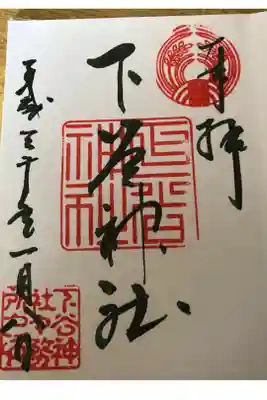 奉拝
下谷神社
下谷
神社
平成三十年一月八日
下谷神
社社務
所之印